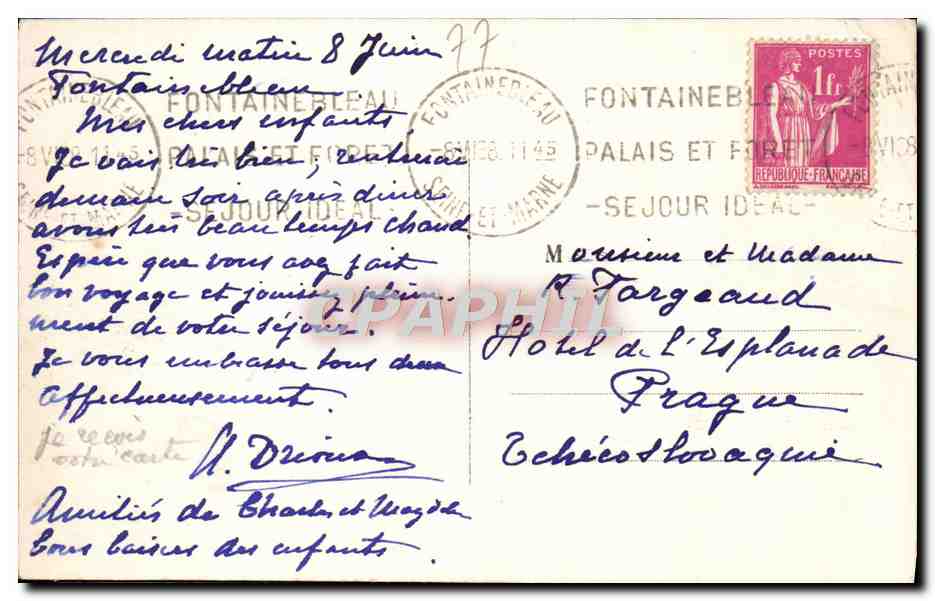 Mercredi matin 8 Juin
77
Fontainebleau.
Mes chers enfants,
Je vais très bien; rentrerai
demain soir après diner
avons très beau temps chaud.
Espère que vous avez fait
bon voyage et jouissez pleine-
ment de votre séjour.
Je vous embrasse tous deux
affectueusement.
je reçois
votre carte
Amitiés de Charles et
bons baisers des enfants.
FONTAINEBLEAU
SEINE-ET-MARNE
-8 VI 38. 11 45
FONTAINEBLEAU
PALAIS ET FORET
-SEJOUR IDEAL-
FONTAINEBLEAU
-8 VI 38. 11 45
SEINE-ET-MARNE
FONTAINEBLEAU
PALAIS ET FORET
-SEJOUR IDEAL-
POSTES
1fr
REPUBLIQUE-FRANÇAISE
Monsieur et Madame
R Fargeaud
Hotel de l'Esplanade
Prague
Tchécoslovaquie
CPAPHIL